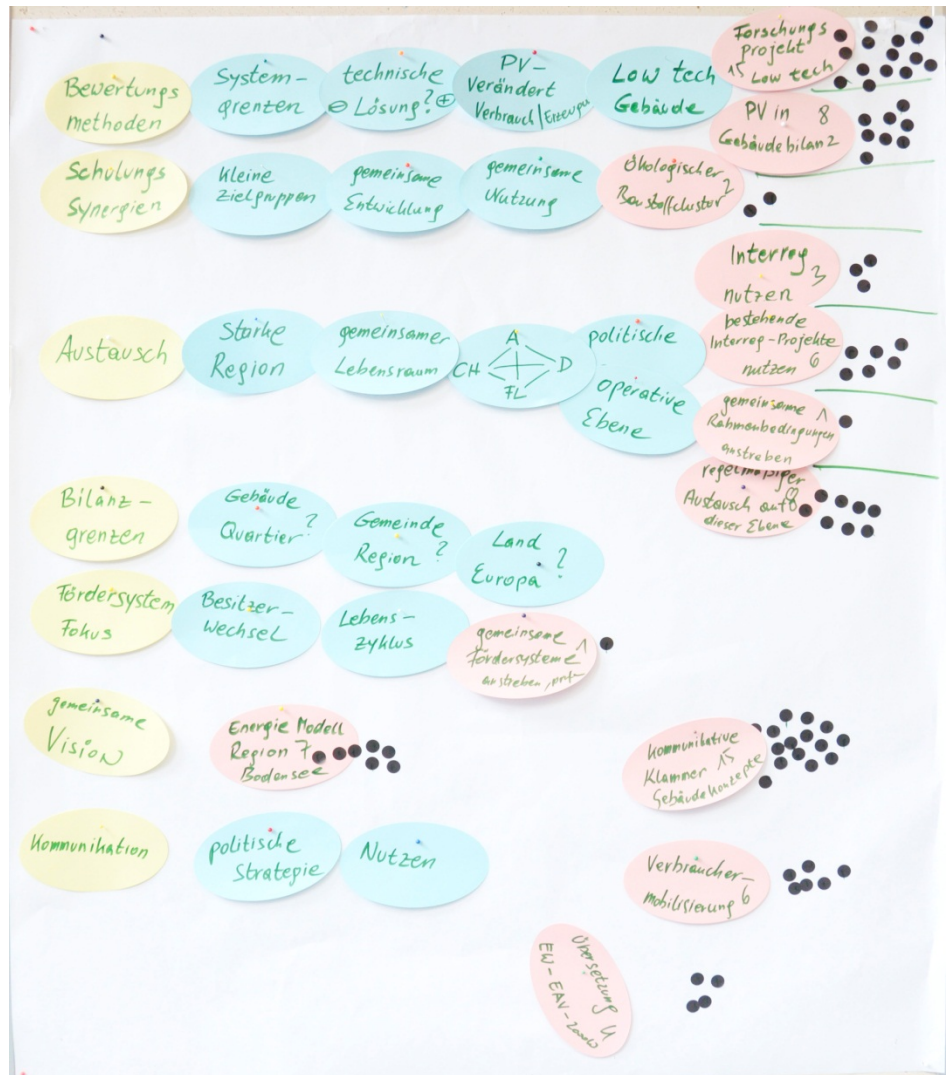 Bewertungs
methoden
System-
grenzen
technische
⊖ Lösung? ⊕
PV-
Verändert
Verbrauch/Erzeugung
Low tech
Gebäude
Forschungs
projekt
15 Low tech
PV in 8
Gebäudebilanz
Schulungs
Synergien
kleine
Zielgruppen
gemeinsame
Entwicklung
gemeinsame
Nutzung
Ökologischer
Baustoffcluster 2
Interreg
nutzen 3
Austausch
Starke
Region
gemeinsamer
Lebensraum
A
CH D
FL
politische
operative
Ebene
bestehende
Interreg-Projekte
nutzen 6
gemeinsame 1
Rahmenbedingungen
anstreben
regelmäßiger
Austausch auf 8
dieser Ebene
Bilanz-
grenzen
Gebäude
Quartier?
Gemeinde
Region?
Land
Europa?
Fördersystem
Fokus
Besitzer-
Wechsel
Lebens-
zyklus
gemeinsame 1
Fördersysteme
anstreben,
gemeinsame
Vision
Energie Modell
Region 7
Bodensee
kommunikative
Klammer 15
Gebäudekonzepte
Kommunikation
politische
Strategie
Nutzen
Verbraucher-
mobilisierung 6
Übersetzung 4
EW-EAV-